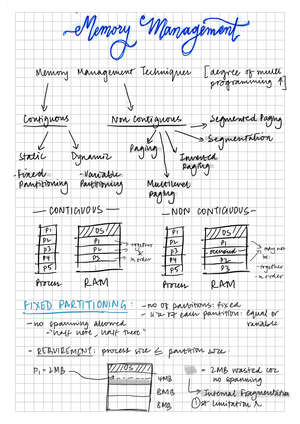 Memory Management
Memory Management Techniques [degree of multi
programming ↑]
Contiguous
Non Contiguous
→ Segmented Paging
→ Segmentation
Static
Dynamic
Paging
Inverted
Paging
- Fixed
Partitioning
- Variable
Partitioning
Multilevel
Paging
— CONTIGUOUS —
— NON CONTIGUOUS —
P1
P2
P3
P4
P5
Process
OS
P1
P2
P3
RAM
→ together
in order
P1
P2
P3
P4
P5
Process
OS
P1
P2
RAM
may not
be:
- together
- in order
FIXED PARTITIONING: - no of partitions: fixed
- size of each partition: equal or
variable
- no spanning allowed
"half here, half there"
- REQUIREMENT: process size ≤ partition size
P1 = 2MB
4MB
8MB
8MB
= 2MB wasted coz
no spanning
→ Internal Fragmentation
1st limitation